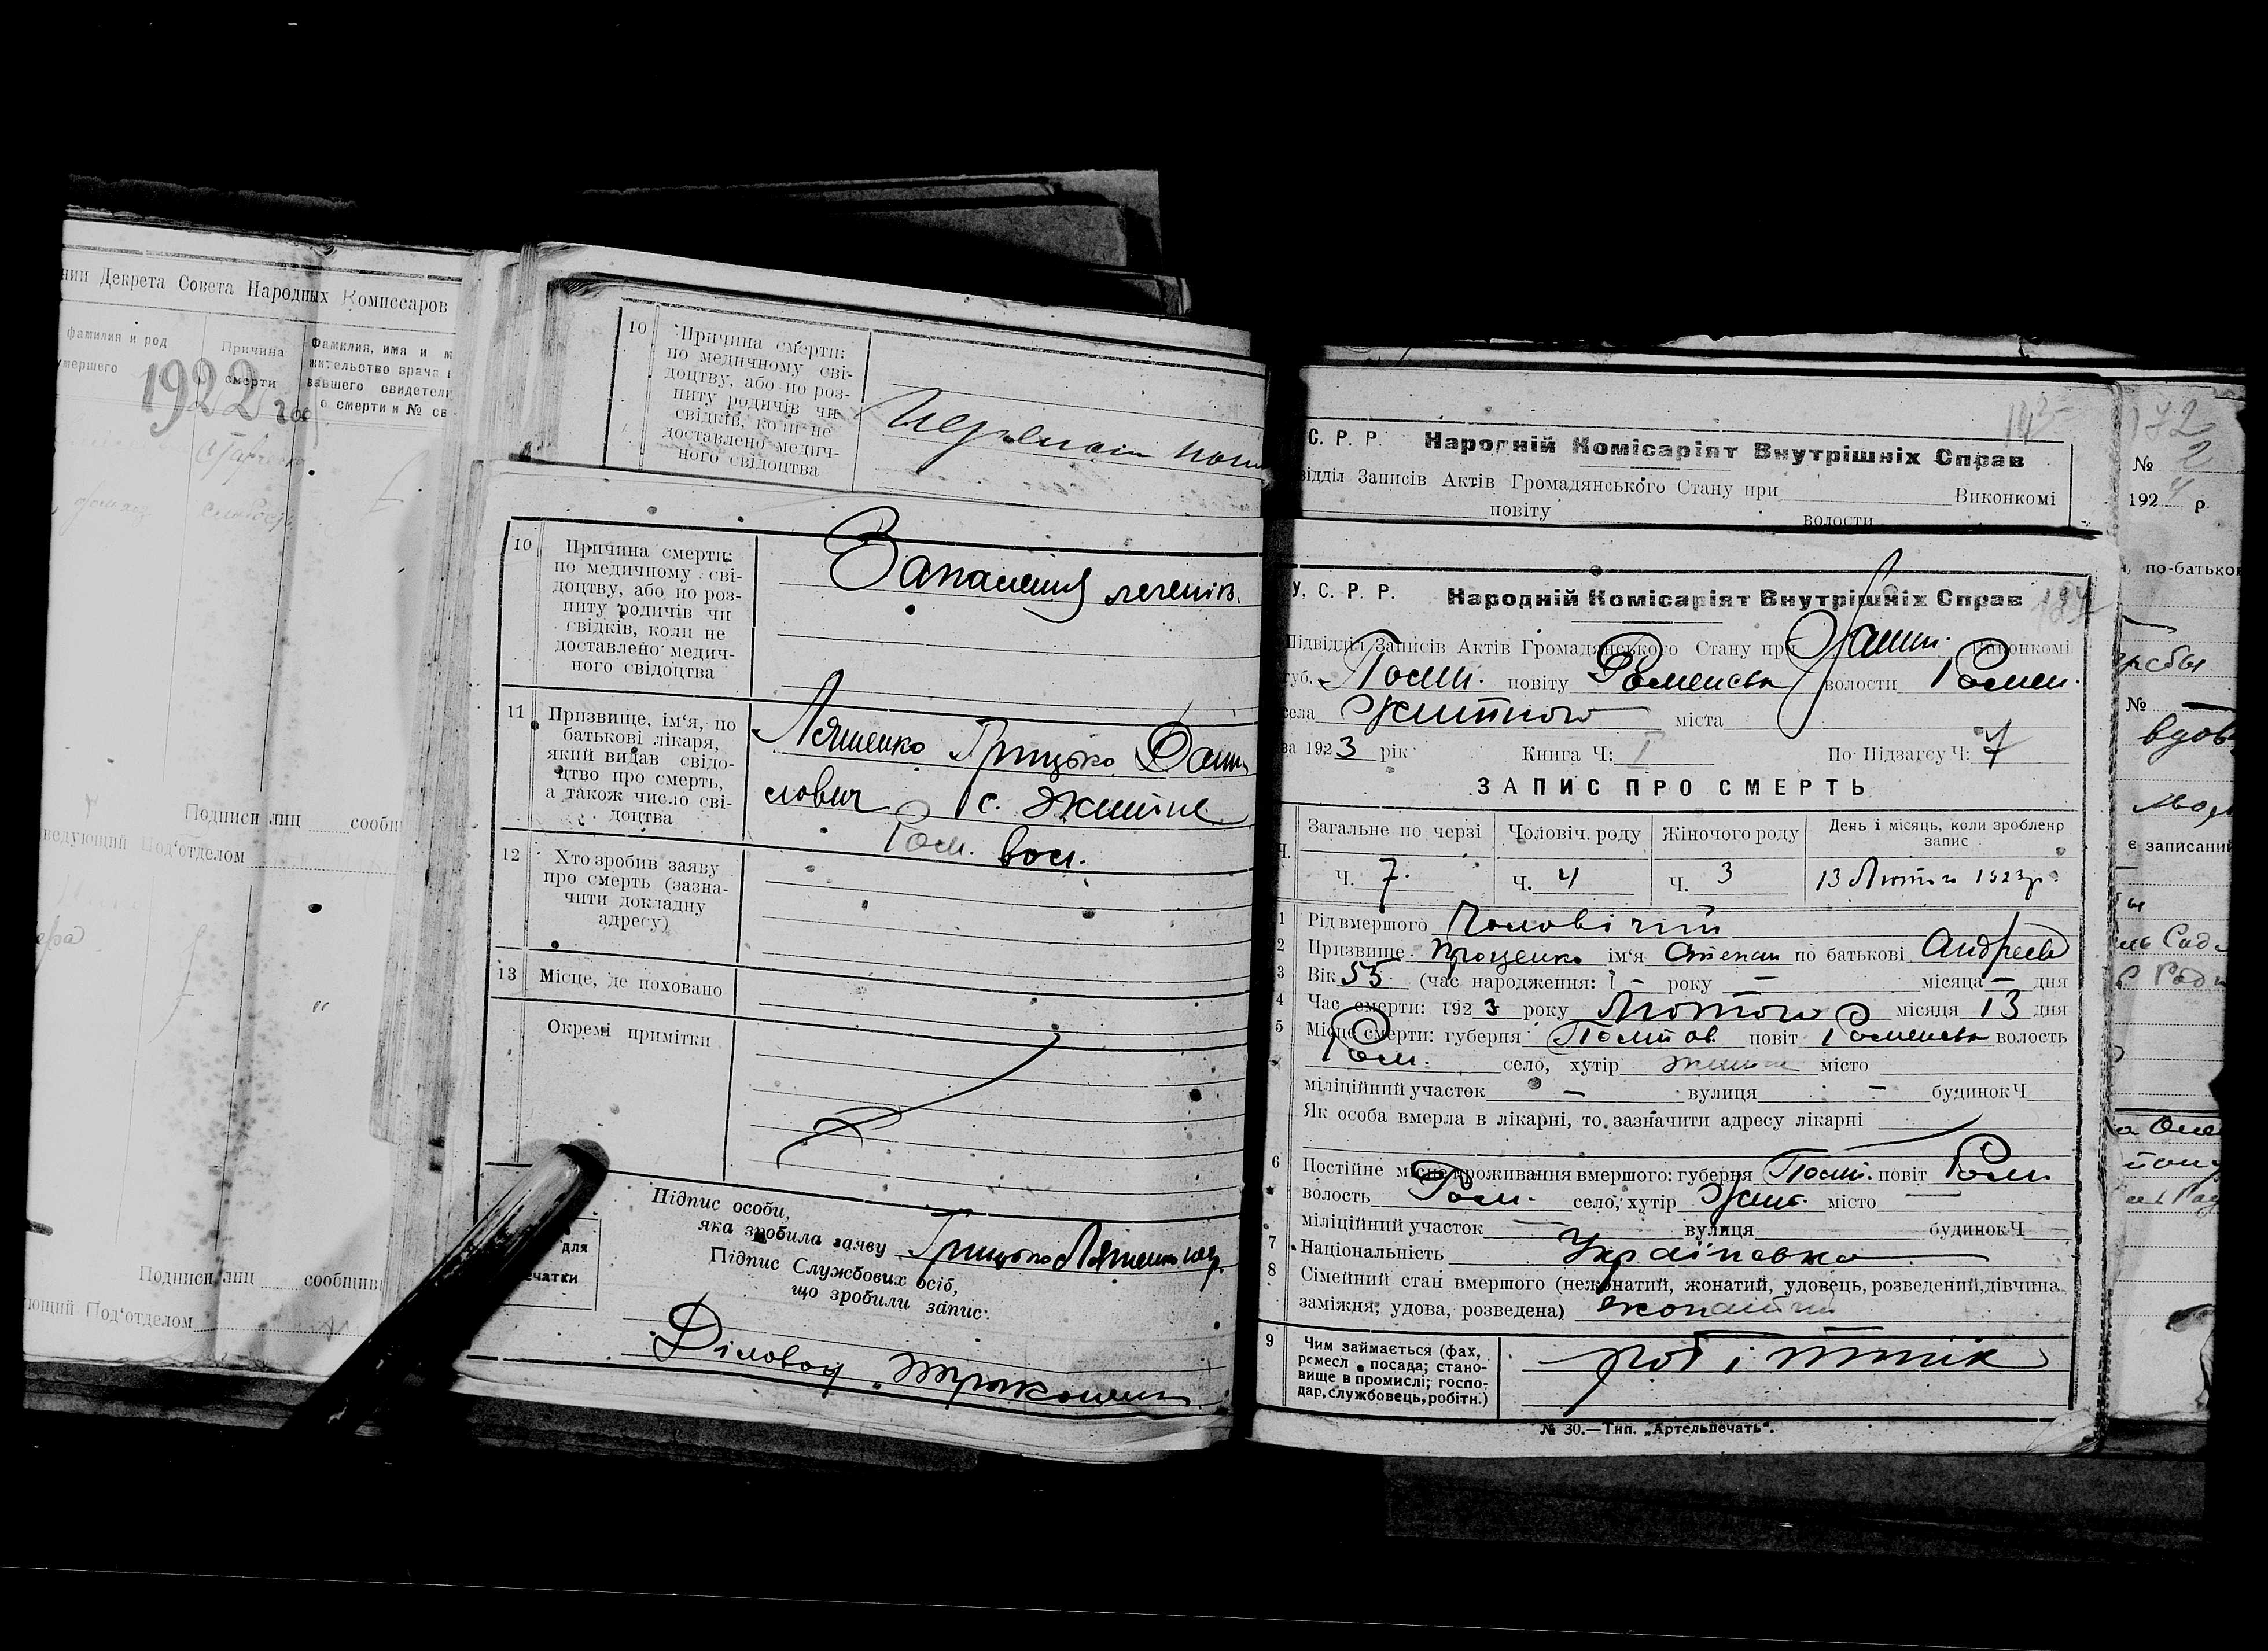 нии Декрета Совета Народных Комиссаров
фамилия и род
умершего
Причина
смерти
Фамилия, имя и м
жительство врача в
вавшего свидетель
о смерти и № св
1922 год
Подписи лиц сообщ
ведующий Под'отделом
Подписи лиц сообщивш
ющий Под'отделом
10 Причина смерти:
по медичному сві-
доцтву, або по роз-
питу родичів чи
свідків, коли не
доставлено медич-
ного свідоцтва
10 Причина смерти:
по медичному сві-
доцтву, або по роз-
питу родичів чи
свідків, коли не
доставлено медич-
ного свідоцтва
Запалення легенів.
11 Призвище, ім'я, по
батькові лікаря,
який видав свідо-
цтво про смерть,
а також число сві-
доцтва
Ляшенко Грицько Дани
лович с. Житне
Ром. вол.
12 Хто зробив заяву
про смерть (зазна-
чити докладну
адресу)
13 Місце, де поховано
Окремі примітки
Підпис особи,
яка зробила заяву Грицько Ляшенко
для
чатки
Підпис Службових осіб,
що зробили запис:
Діловод
С. Р. Р. Народній Комісаріят Внутрішніх Справ
відділ Записів Актів Громадянського Стану при Виконкомі
повіту волости
У. С. Р. Р. Народній Комісаріят Внутрішніх Справ
Підвідділ Записів Актів Громадянського Стану при Виконкомі
губ. Полт. повіту Роменськ волости Ромен.
села Житного міста
за 1923 рік Книга Ч: I По Підзагсу Ч: 7
ЗАПИС ПРО СМЕРТЬ
Ч. Загальне по черзі Чоловіч. роду Жіночого роду День і місяць, коли зроблено
запис
Ч. 7. Ч. 4 Ч. 3 13 Лютого 1923 р.
1 Рід вмершого Чоловічий
2 Призвище Проценко ім'я Степан по батькові Андреев
3 Вік 55 (час народження: 1 — року — місяца — дня
4 Час смерти: 1923 року Лютого місяця 13 дня
5 Місце смерти: губерня Полтав. повіт Роменськ волость
Ром. село, хутір Житне місто
міліційний участок — вулиця — будинок Ч
Як особа вмерла в лікарні, то зазначити адресу лікарні
6 Постійне місце проживання вмершого: губерня Полт. повіт Ром.
волость Ром. село, хутір Жит. місто —
міліційний участок — вулиця — будинок Ч —
7 Національність Українська
8 Сімейний стан вмершого (нежонатий, жонатий, удовець, розведений, дівчина
заміжня, удова, розведена) жонатий
9 Чим займається (фах,
ремесл , посада; стано-
вище в промислі; госпо-
дар, службовець, робітн.)
робітник
№ 30.—Тип. „Артельпечать".
172
№ 2
1924 р.
, по-батьков
№ —
вдова
е записаний